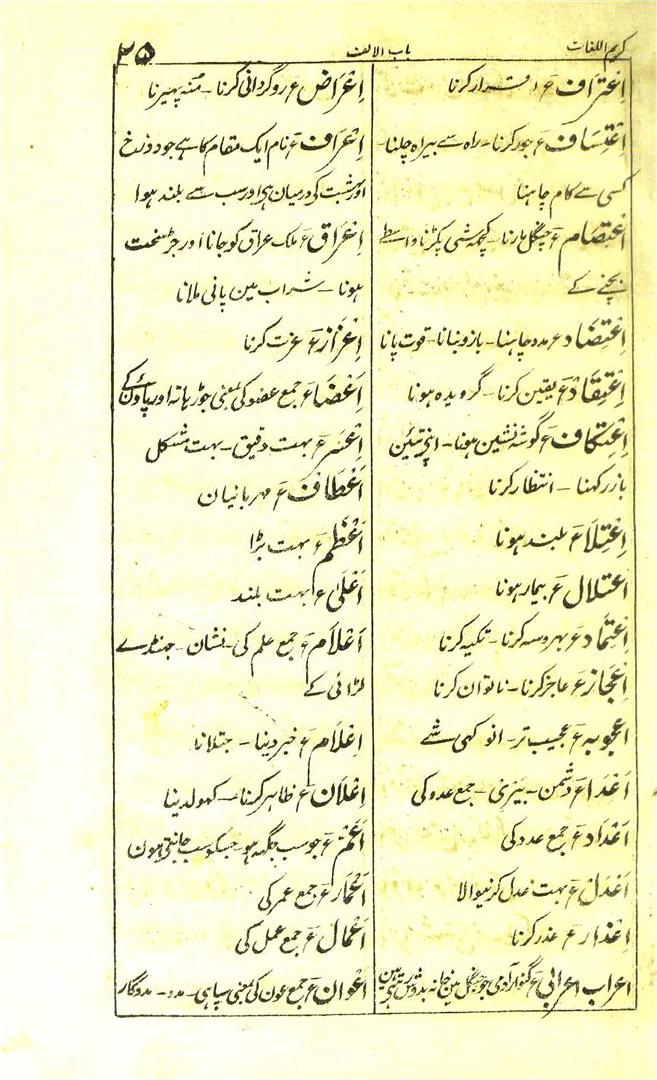 کریم اللغات
باب الالف
۳۵
اِعْتِرَاف ع اقرار کرنا
اِعْتِسَاف ع جور کرنا - راہ سے بیراہ چلنا -
کسی سے کام چاہنا
اِعْتِصَام ع چنگل مارنا - کچھ شی پکڑنا واسطے
بچنے کے
اِعْتِضَاد ع مدد چاہنا - بازو بنانا - قوت پانا
اِعْتِقَاد ع یقین کرنا - گرویدہ ہونا
اِعْتِکَاف ع گوشہ نشین ہونا - اپنی تئین
بازرکھنا - انتظار کرنا
اِعْتِلَاء ع بلند ہونا
اعتلال ع بیمار ہونا
اِعْتِمَاد ع بہروسہ کرنا - تکیہ کرنا
اِعْجَاز ع عاجز کرنا - ناتوان کرنا
اعجوبہ ع عجیب تر - انوکہی شے
اَعْدَاء ع دشمن - بیری - جمع عدو کی
اَعْدَاد ع جمع عدد کی
اَعْدَل ع بہت عدل کرنیوالا
اِعْذَار ع عذر کرنا
اعراب اعرابی ع گنوار آدمی جو جنگل مین خانہ بدوش رہتی ہین
اِعْرَاض ع روگردانی کرنا - منہ پہیرنا
اِعْرَاف ع نام ایک مقام کا ہے جو دوزخ
اور بہشت کی درمیان ہی اور سب سے بلند ہوا
اِعْرَاق ع ملک عراق کو جانا اور جڑ سخت
ہونا - شراب مین پانی ملانا
اِعْزَاز ع عزت کرنا
اَعْضَاء ع جمع عضو کی بمعنی جوڑ ہاتہ اور پاؤن کے
اَعْسَر ع بہت دقیق - بہت مشکل
اَعْطَاف ع مہربانیان
اَعْظَم ع بہت بڑا
اَعْلیٰ ع بہت بلند
اَعْلَام ع جمع علم کی - نشان - جہنڈے
لڑائی کے
اِعْلَام ع خبر دینا - جتلانا
اِعْلَان ع ظاہر کرنا - کہولدینا
اَعَمّ ع جو سب جگہہ ہو - جسکو سب جانتی ہون
اَعْمَار ع جمع عمر کی
اَعْمَال ع جمع عمل کی
اَعْوَان ع جمع عون کی بمعنی سپاہی - مدد - مددگار